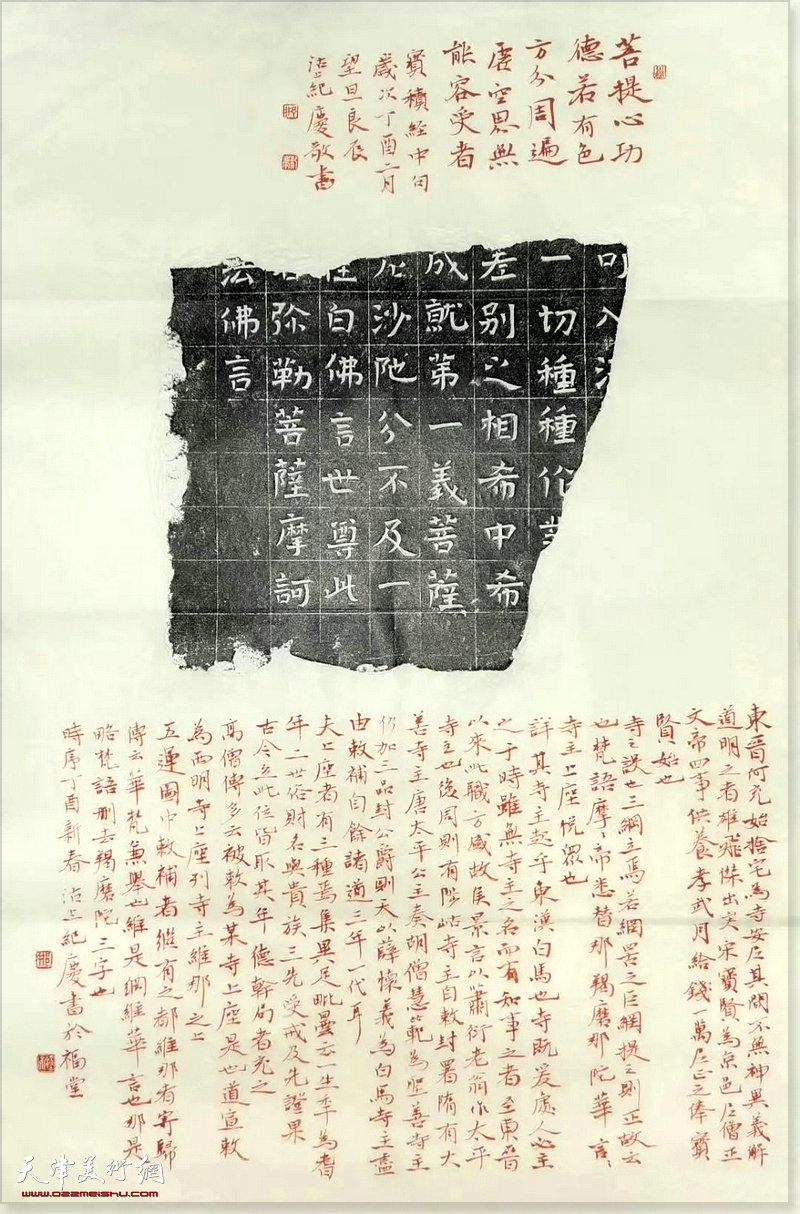 菩提心功
德若有色
方分周遍
虛空界無
能容受者
寶積經中句
歲次丁酉二月
望旦良辰
沽上紀慶敬書
可入法
一切種種作業
差別之相希中希
成就第一義菩薩
沙陁分不及一
白佛言世尊此
弥勒菩薩摩訶
法佛言
東晉何充始捨宅為寺安尼其間不無神異義解
道明之者雄飛傑出矣宋寶賢為京邑尼僧正
文帝四事供養孝武月給錢一萬尼正之俸寶
賢始也
寺之設也三綱立焉若網罟之巨綱提之則正故云
也梵語摩摩帝悉替那羯磨那陀華言言
寺主上座悅眾也
詳其寺主起乎東漢白馬也寺既爰處人必主
之于時雖無寺主之名而有知事之者至東晉
以來此職方盛故侯景言以蕭衍老翁作太平
寺主也後周則有陟岵寺主自敕封署隋有大
善寺主唐太平公主奏胡僧慧範為聖善寺主
仍加三品封公爵則天以薛懷義為白馬寺主盡
由敕補自餘諸道三年一代耳
夫上座者有三種焉集異足毗曇云一生年為耆
年二世俗財名與貴族三先受戒及先證果
古今立此位皆取其年德幹局者充之
高僧傳多云被敕為某寺上座是也道宣敕
為西明寺上座列寺主維那之上
五運圖中敕補者繼有之都維那者寄歸
傳云華梵兼舉也維是綱維華言也那是
略梵語刪去羯磨陀三字也
時序丁酉新春沽上紀慶書於福堂
天津美術網
www.022meishu.com